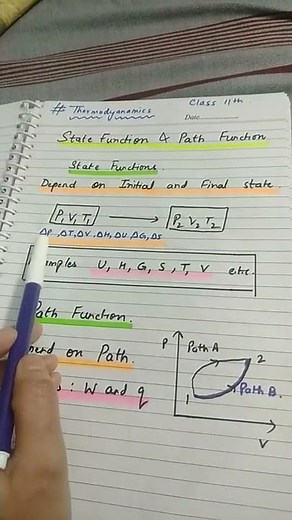 # Thermodyanamics
Class 11th
Date
State Function & Path Function
State Functions
Depend on Initial and Final state.
P₁ V₁ T₁ → P₂ V₂ T₂
ΔP, ΔT, ΔV, ΔH, ΔU, ΔG, ΔS
U, H, G, S, T, V etc.
Path Function.
on Path.
: W and q
P
Path A
2
1
Path B.
V